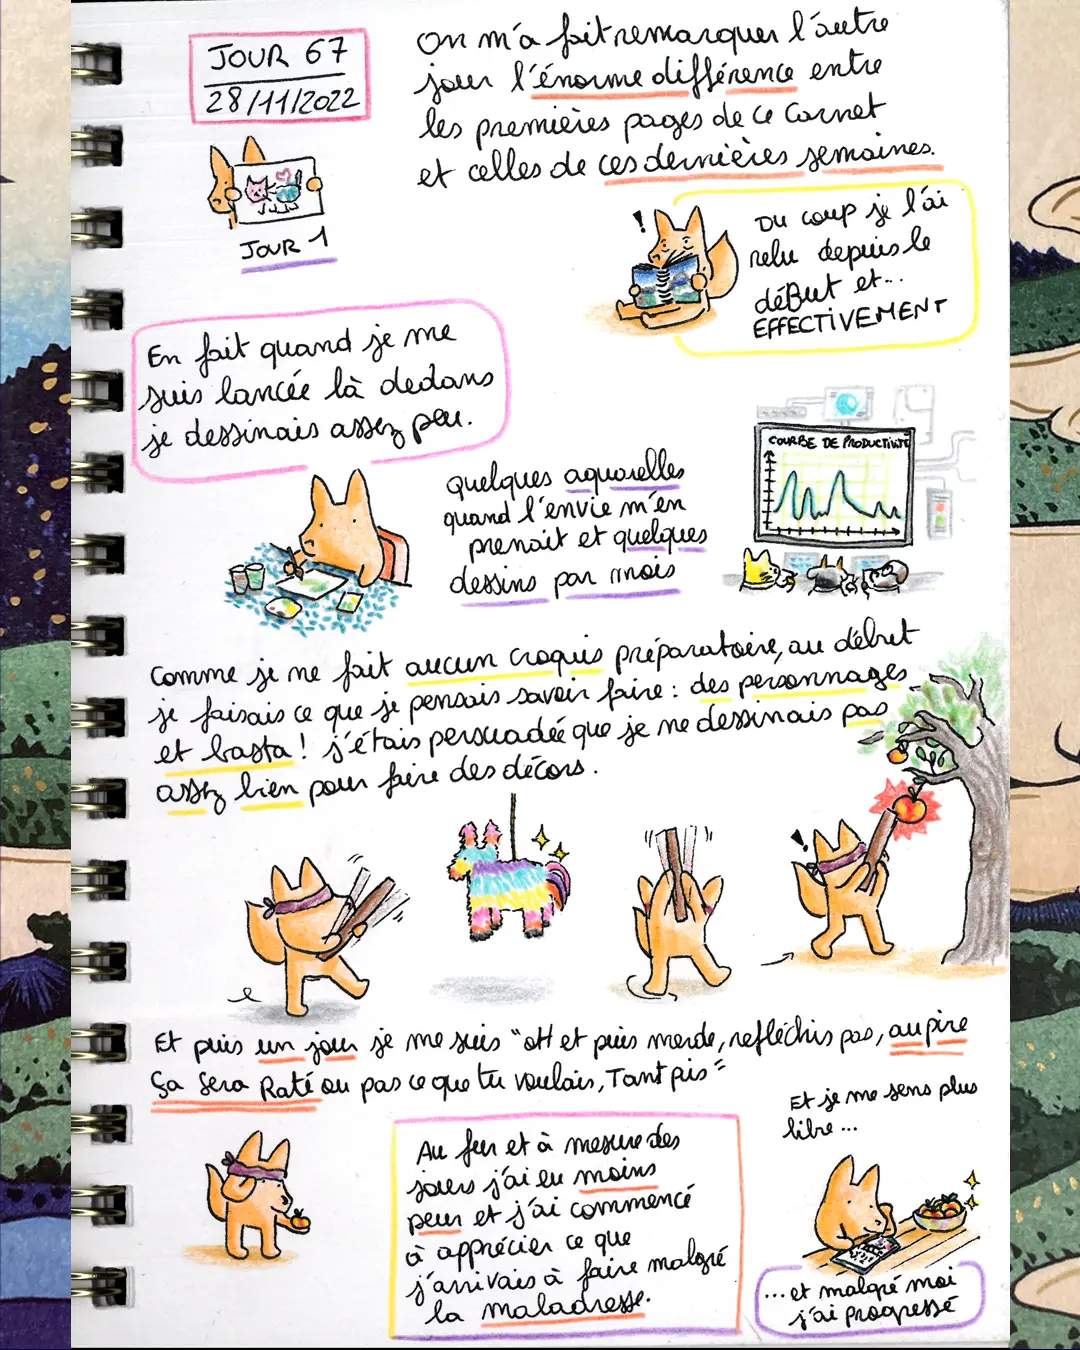 JOUR 67
28/11/2022
On m'a fait remarquer l'autre
jour l'énorme différence entre
les premières pages de ce carnet
et celles de ces dernières semaines.
JOUR 1
!
Du coup je l'ai
relu depuis le
déBut et...
EFFECTIVEMENT
En fait quand je me
suis lancée là dedans
je dessinais assez peu.
Quelques aquarelles
quand l'envie m'en
prenait et quelques
dessins par mois
COURBE DE PRODUCTIVITÉ
Comme je ne fait aucun croquis préparatoire, au début
je faisais ce que je pensais savoir faire : des personnages
et basta ! j'étais persuadée que je ne dessinais pas
assez bien pour faire des décors.
!
Et puis un jour je me suis "oH et puis merde, refléchis pas, au pire
ça sera Raté ou pas ce que tu voulais, Tant pis"
Au fur et à mesure des
jours j'ai eu moins
peur et j'ai commencé
à apprécier ce que
j'arrivais à faire malgré
la maladresse.
Et je me sens plus
libre...
...et malgré moi
j'ai progressé